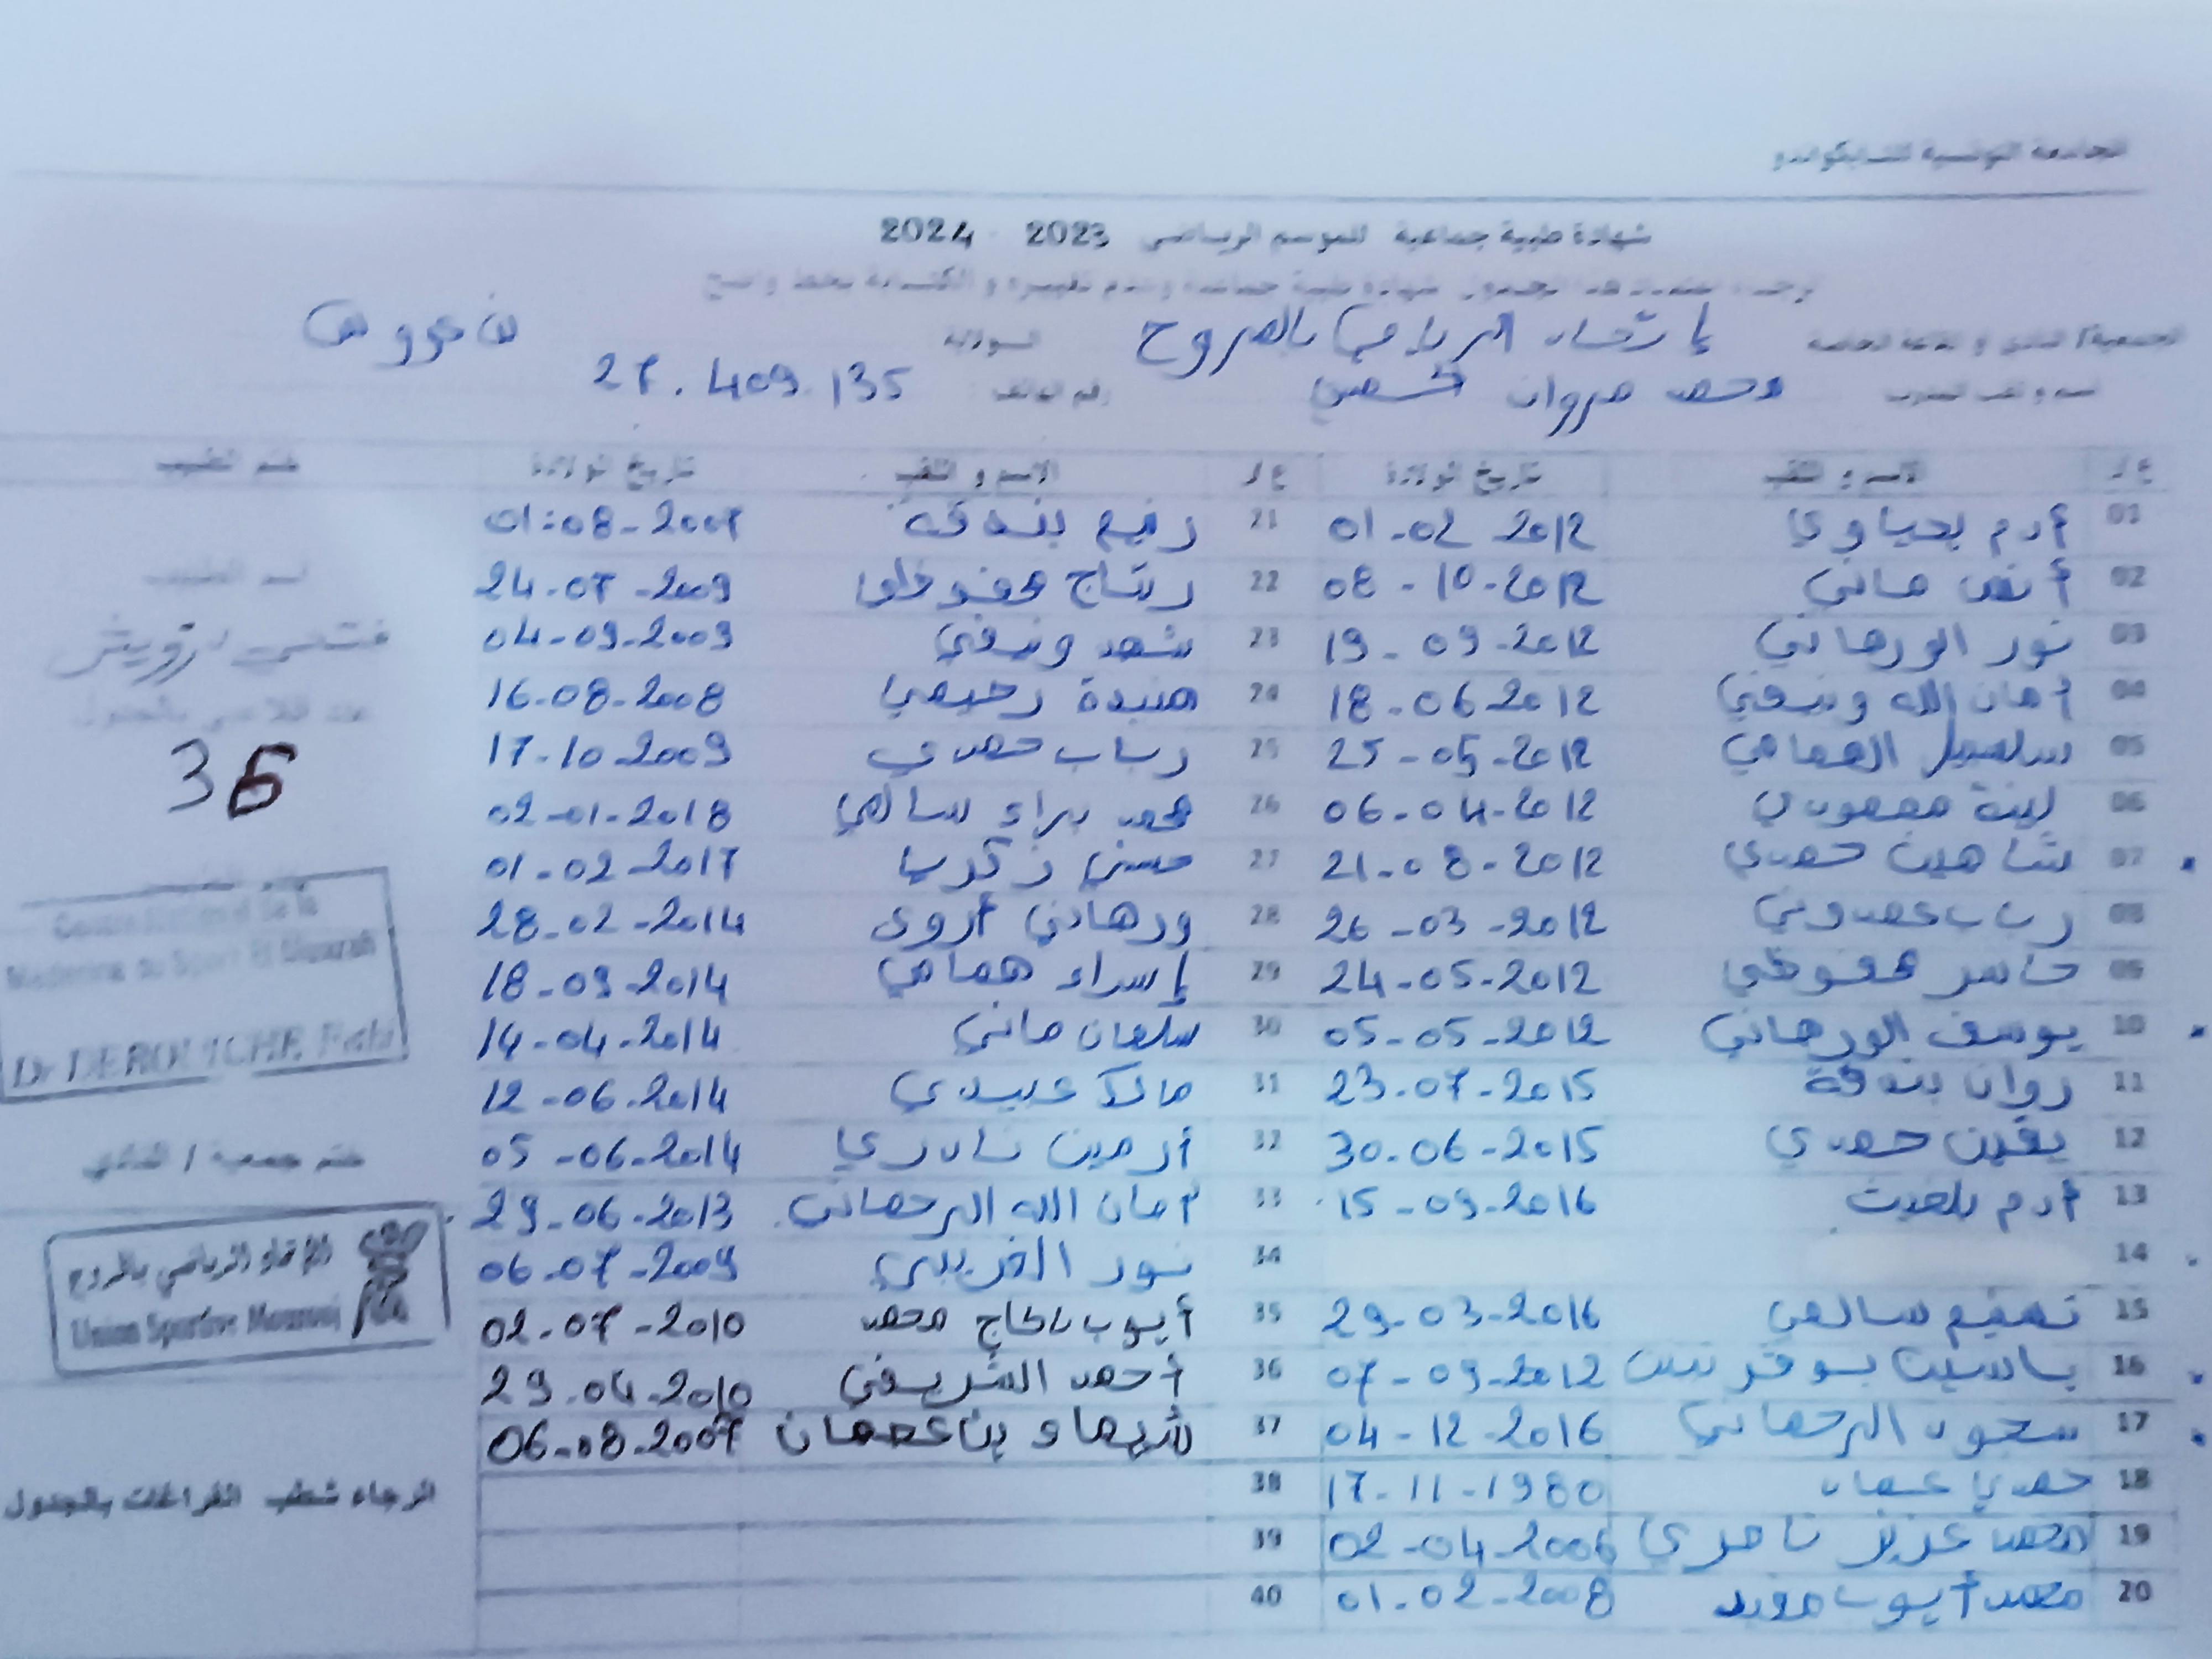 الجامعة التونسية للتايكواندو
شهادة طبية جماعية للموسم الرياضي 2023 - 2024
الجمعية/ النادي و القاعة الخاصة الرياضي بالمروج الولاية بن عروس
اسم و لقب المدرب محمد مروان رقم الهاتف 27.409.135
ع ر الاسم و اللقب تاريخ الولادة ع ر الاسم و اللقب تاريخ الولادة ختم الطبيب
01 أدم يحياوي 01-02-2012 21 بندقة 01-08-2007
02 أنس ماني 08-10-2012 22 رتاج محفوظي 24-07-2009
اسم الطبيب
03 نور الورهاني 19-09-2012 23 شهد وسفي 04-09-2009
فتحي درويش
04 أمان الله وسفي 18-06-2012 24 رحيمي 16-08-2008
عدد اللاعبين بالجدول
05 سلسبيل الهمامي 25-05-2012 25 رباب حمدي 17-10-2009
36
06 لينة 06-04-2012 26 محمد براء سالمي 02-01-2018
07 شاهين حمدي 21-08-2012 27 حسني زكريا 01-02-2017
08 رباب عمدوني 26-03-2012 28 ورهاني أروى 28-02-2014
Centre National de la
Medecine du Sport El Menzah
09 محفوظي 24-05-2012 29 إسراء همامي 18-09-2014
10 يوسف الورهاني 05-05-2012 30 سلمان ماني 14-04-2014
Dr DEROUICHE Fethi
11 روان بندقة 23-07-2015 31 مالك عبيدي 12-06-2014
12 يقين حمدي 30-06-2015 32 أرمين نادري 05-06-2014
ختم جمعية / النادي
13 أدم بلغيث 15-09-2016 33 أمان الله الرحماني 29-06-2013
14 34 نور الغريبي 06-07-2009
الإتحاد الرياضي بالمروج
Union Sportive Mourouj
15 سالمي 29-03-2016 35 أيوب بالحاج محمد 02-07-2010
16 ياسين 07-09-2012 36 أحمد الشريفي 29.04-2010
17 سجود الرحماني 04-12-2016 37 شيماء بن عثمان 06-08-2007
18 حمدي 17-11-1980 38
الرجاء شطب الفراغات بالجدول
19 محمد عزيز نامري 02-04-2006 39
20 محمد أيوب مفيد 01-02-2008 40